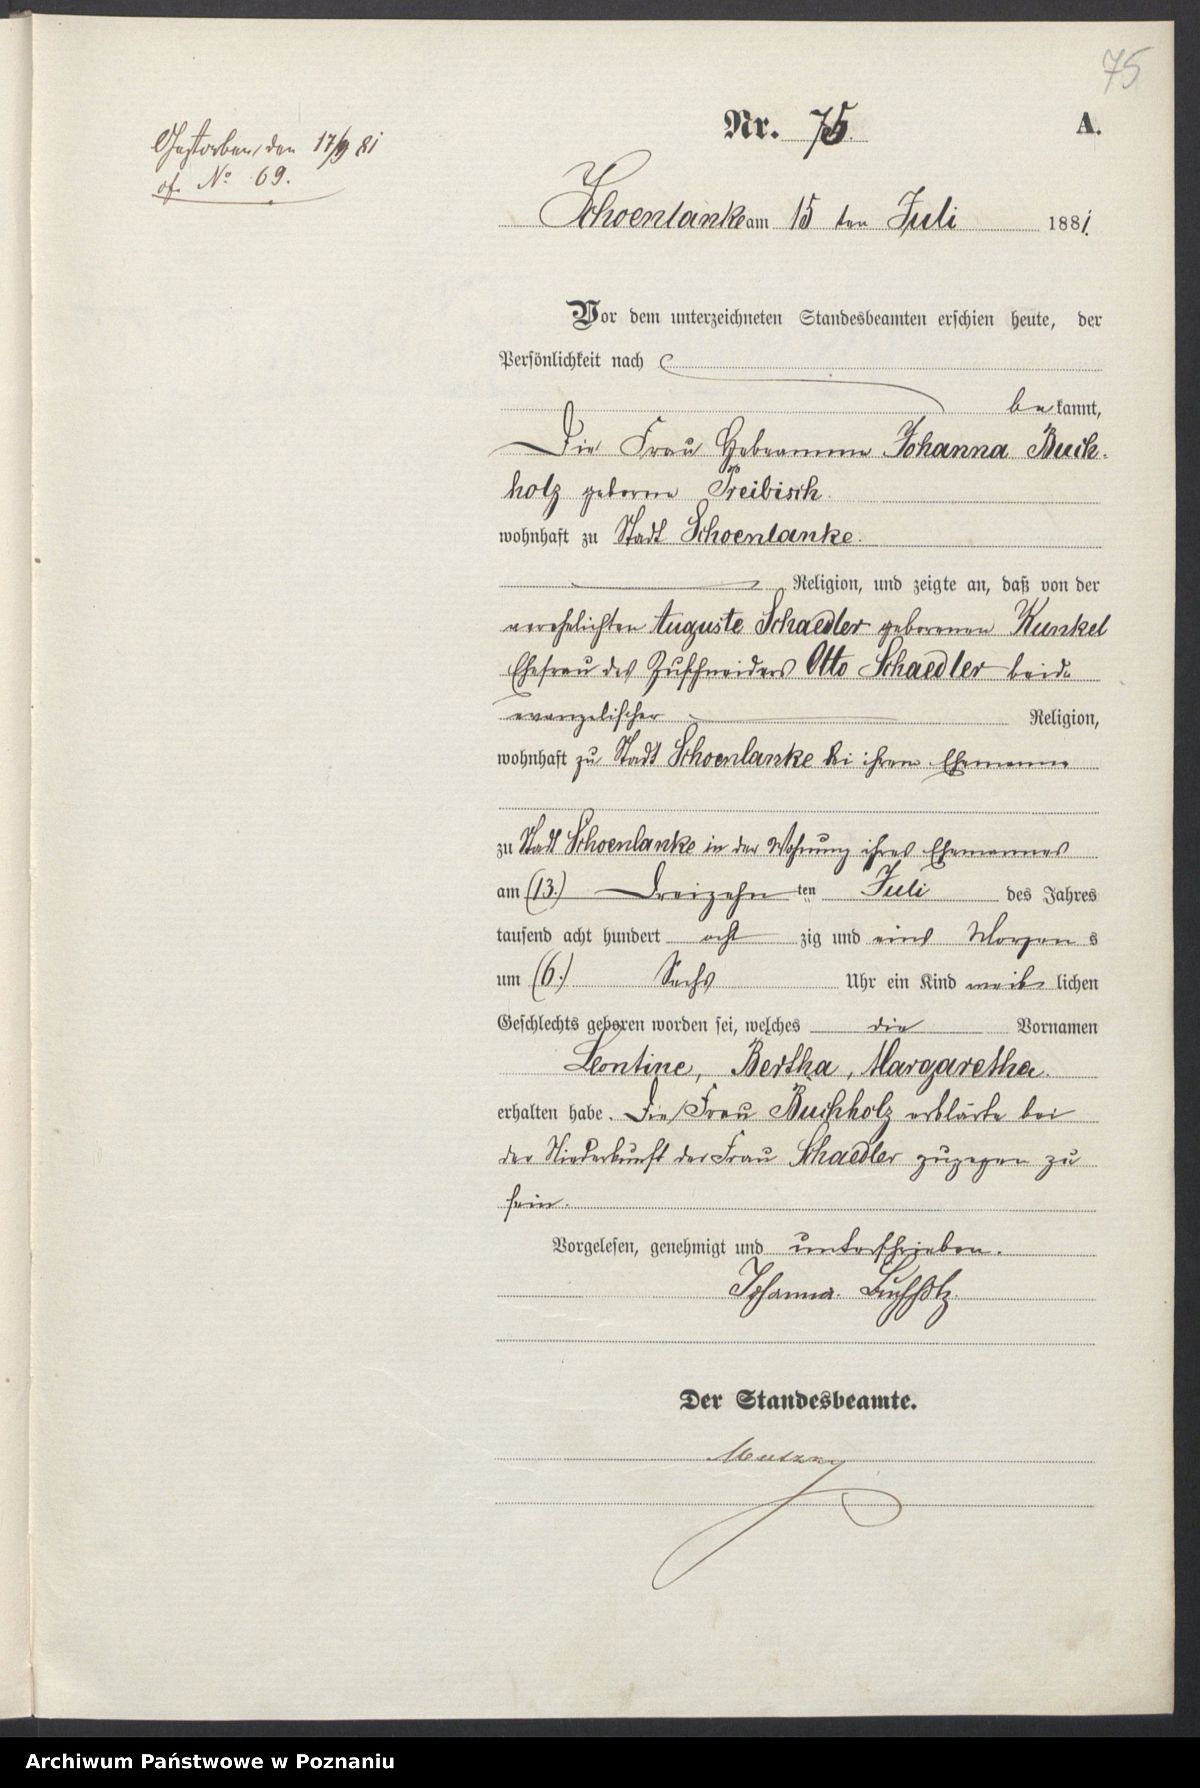 75
Gestorben den 17/9 81
cf. No 69.
Nr. 75. A.
Schoenlanke am 15 ten Juli 1881.
Vor dem unterzeichneten Standesbeamten erschien heute, der
Persönlichkeit nach
bekannt,
Die Frau Hebeamme Johanna Buch-
holz geborne Preibisch.
wohnhaft zu Stadt Schoenlanke.
Religion, und zeigte an, daß von der
verehelichten Auguste Schaedler geborenen Kunkel
Ehefrau des Zuschneiders Otto Schaedler beide
evangelischer Religion,
wohnhaft zu Stadt Schoenlanke bei ihrem Ehemanne
zu Stadt Schoenlanke in der Wohnung ihres Ehemannes
am (13.) Dreizehn ten Juli des Jahres
tausend acht hundert acht zig und eins Morgen s
um (6.) Sechs Uhr ein Kind weib lichen
Geschlechts geboren worden sei, welches die Vornamen
Leontine, Bertha, Margaretha.
erhalten habe. Die Frau Buchholz erklärte bei
der Niederkunft der Frau Schaedler zugegen zu
sein.
Vorgelesen, genehmigt und unterschrieben.
Johanna Buchholz.
Der Standesbeamte.
Archiwum Państwowe w Poznaniu